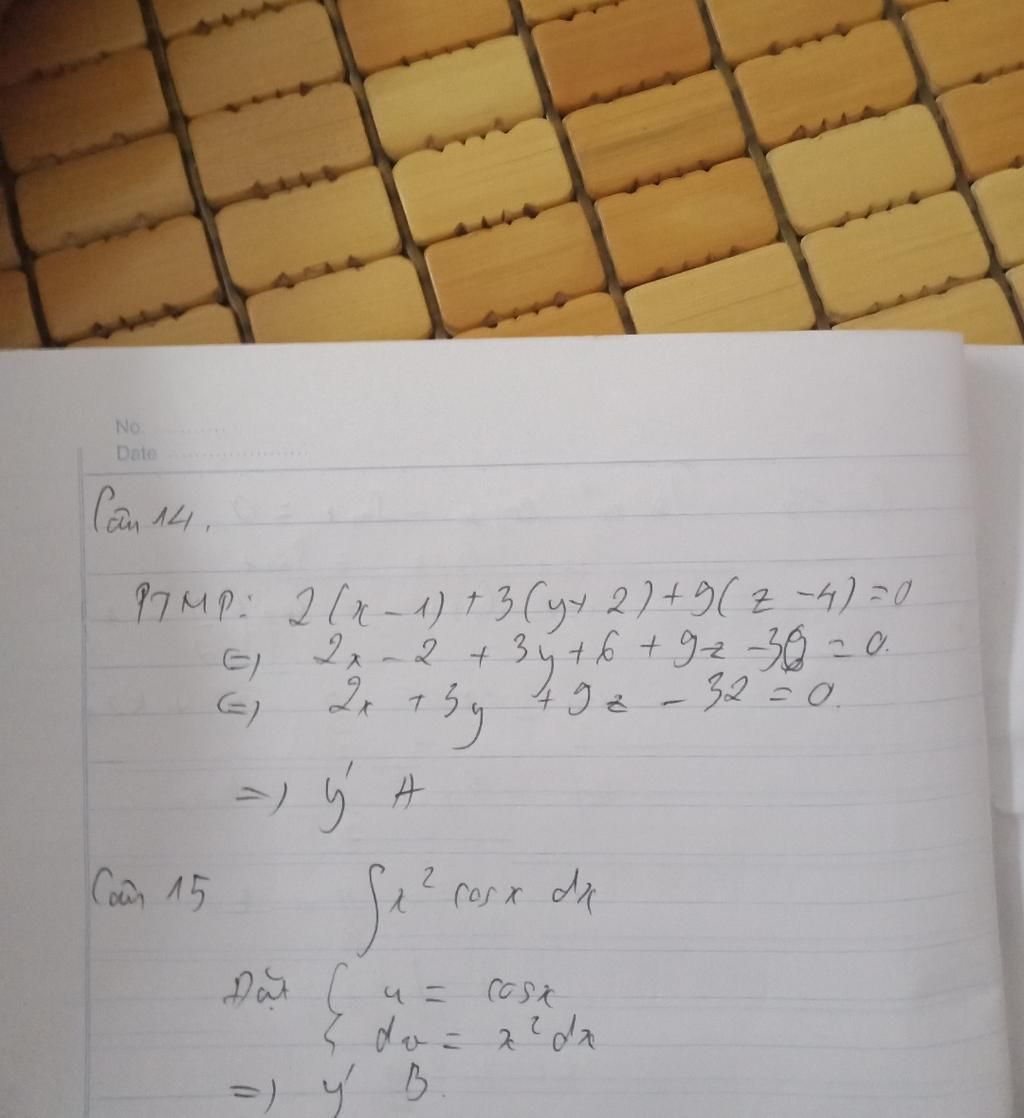 No.
Date
Câu 14.
PTMP: 2(x - 1) + 3(y + 2) + 9(z - 4) = 0
<=> 2x - 2 + 3y + 6 + 9z - 36 = 0.
<=> 2x + 3y + 9z - 32 = 0.
=> ý A
Câu 15 ∫x² cosx dx
Đặt { u = cosx
{ dv = x² dx
=> ý B.